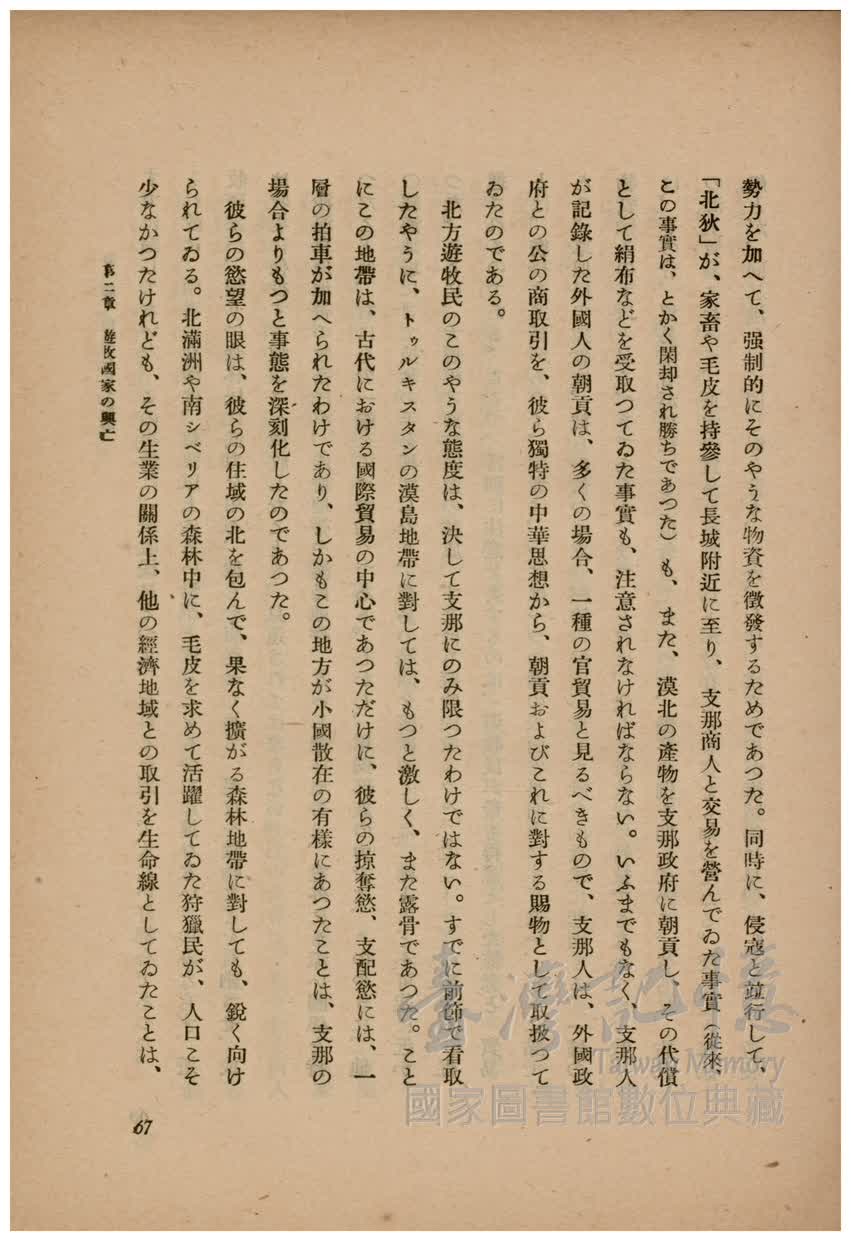 勢力を加へて、强制的にそのやうな物資を徵發するためであつた。同時に、侵寇と竝行して、
「北狄」が、家畜や毛皮を持參して長城附近に至り、支那商人と交易を營んでゐた事實（從來、
この事實は、とかく閑却され勝ちであつた）も、また、漠北の產物を支那政府に朝貢し、その代償
として絹布などを受取つてゐた事實も、注意されなければならない。いふまでもなく、支那人
が記錄した外國人の朝貢は、多くの場合、一種の官貿易と見るべきもので、支那人は、外國政
府との公の商取引を、彼ら獨特の中華思想から、朝貢およびこれに對する賜物として取扱つて
ゐたのである。
北方遊牧民のこのやうな態度は、決して支那にのみ限つたわけではない。すでに前節で看取
したやうに、トゥルキスタンの漠島地帶に對しては、もつと激しく、また露骨であつた。こと
にこの地帶は、古代における國際貿易の中心であつただけに、彼らの掠奪慾、支配慾には、一
層の拍車が加へられたわけであり、しかもこの地方が小國散在の有樣にあつたことは、支那の
場合よりもつと事態を深刻化したのであつた。
彼らの慾望の眼は、彼らの住域の北を包んで、果なく擴がる森林地帶に對しても、銳く向け
られてゐる。北滿洲や南シベリアの森林中に、毛皮を求めて活躍してゐた狩獵民が、人口こそ
少なかつたけれども、その生業の關係上、他の經濟地域との取引を生命線としてゐたことは、
第二章 遊牧國家の興亡
67
臺灣記憶
Taiwan Memory
國家圖書館數位典藏